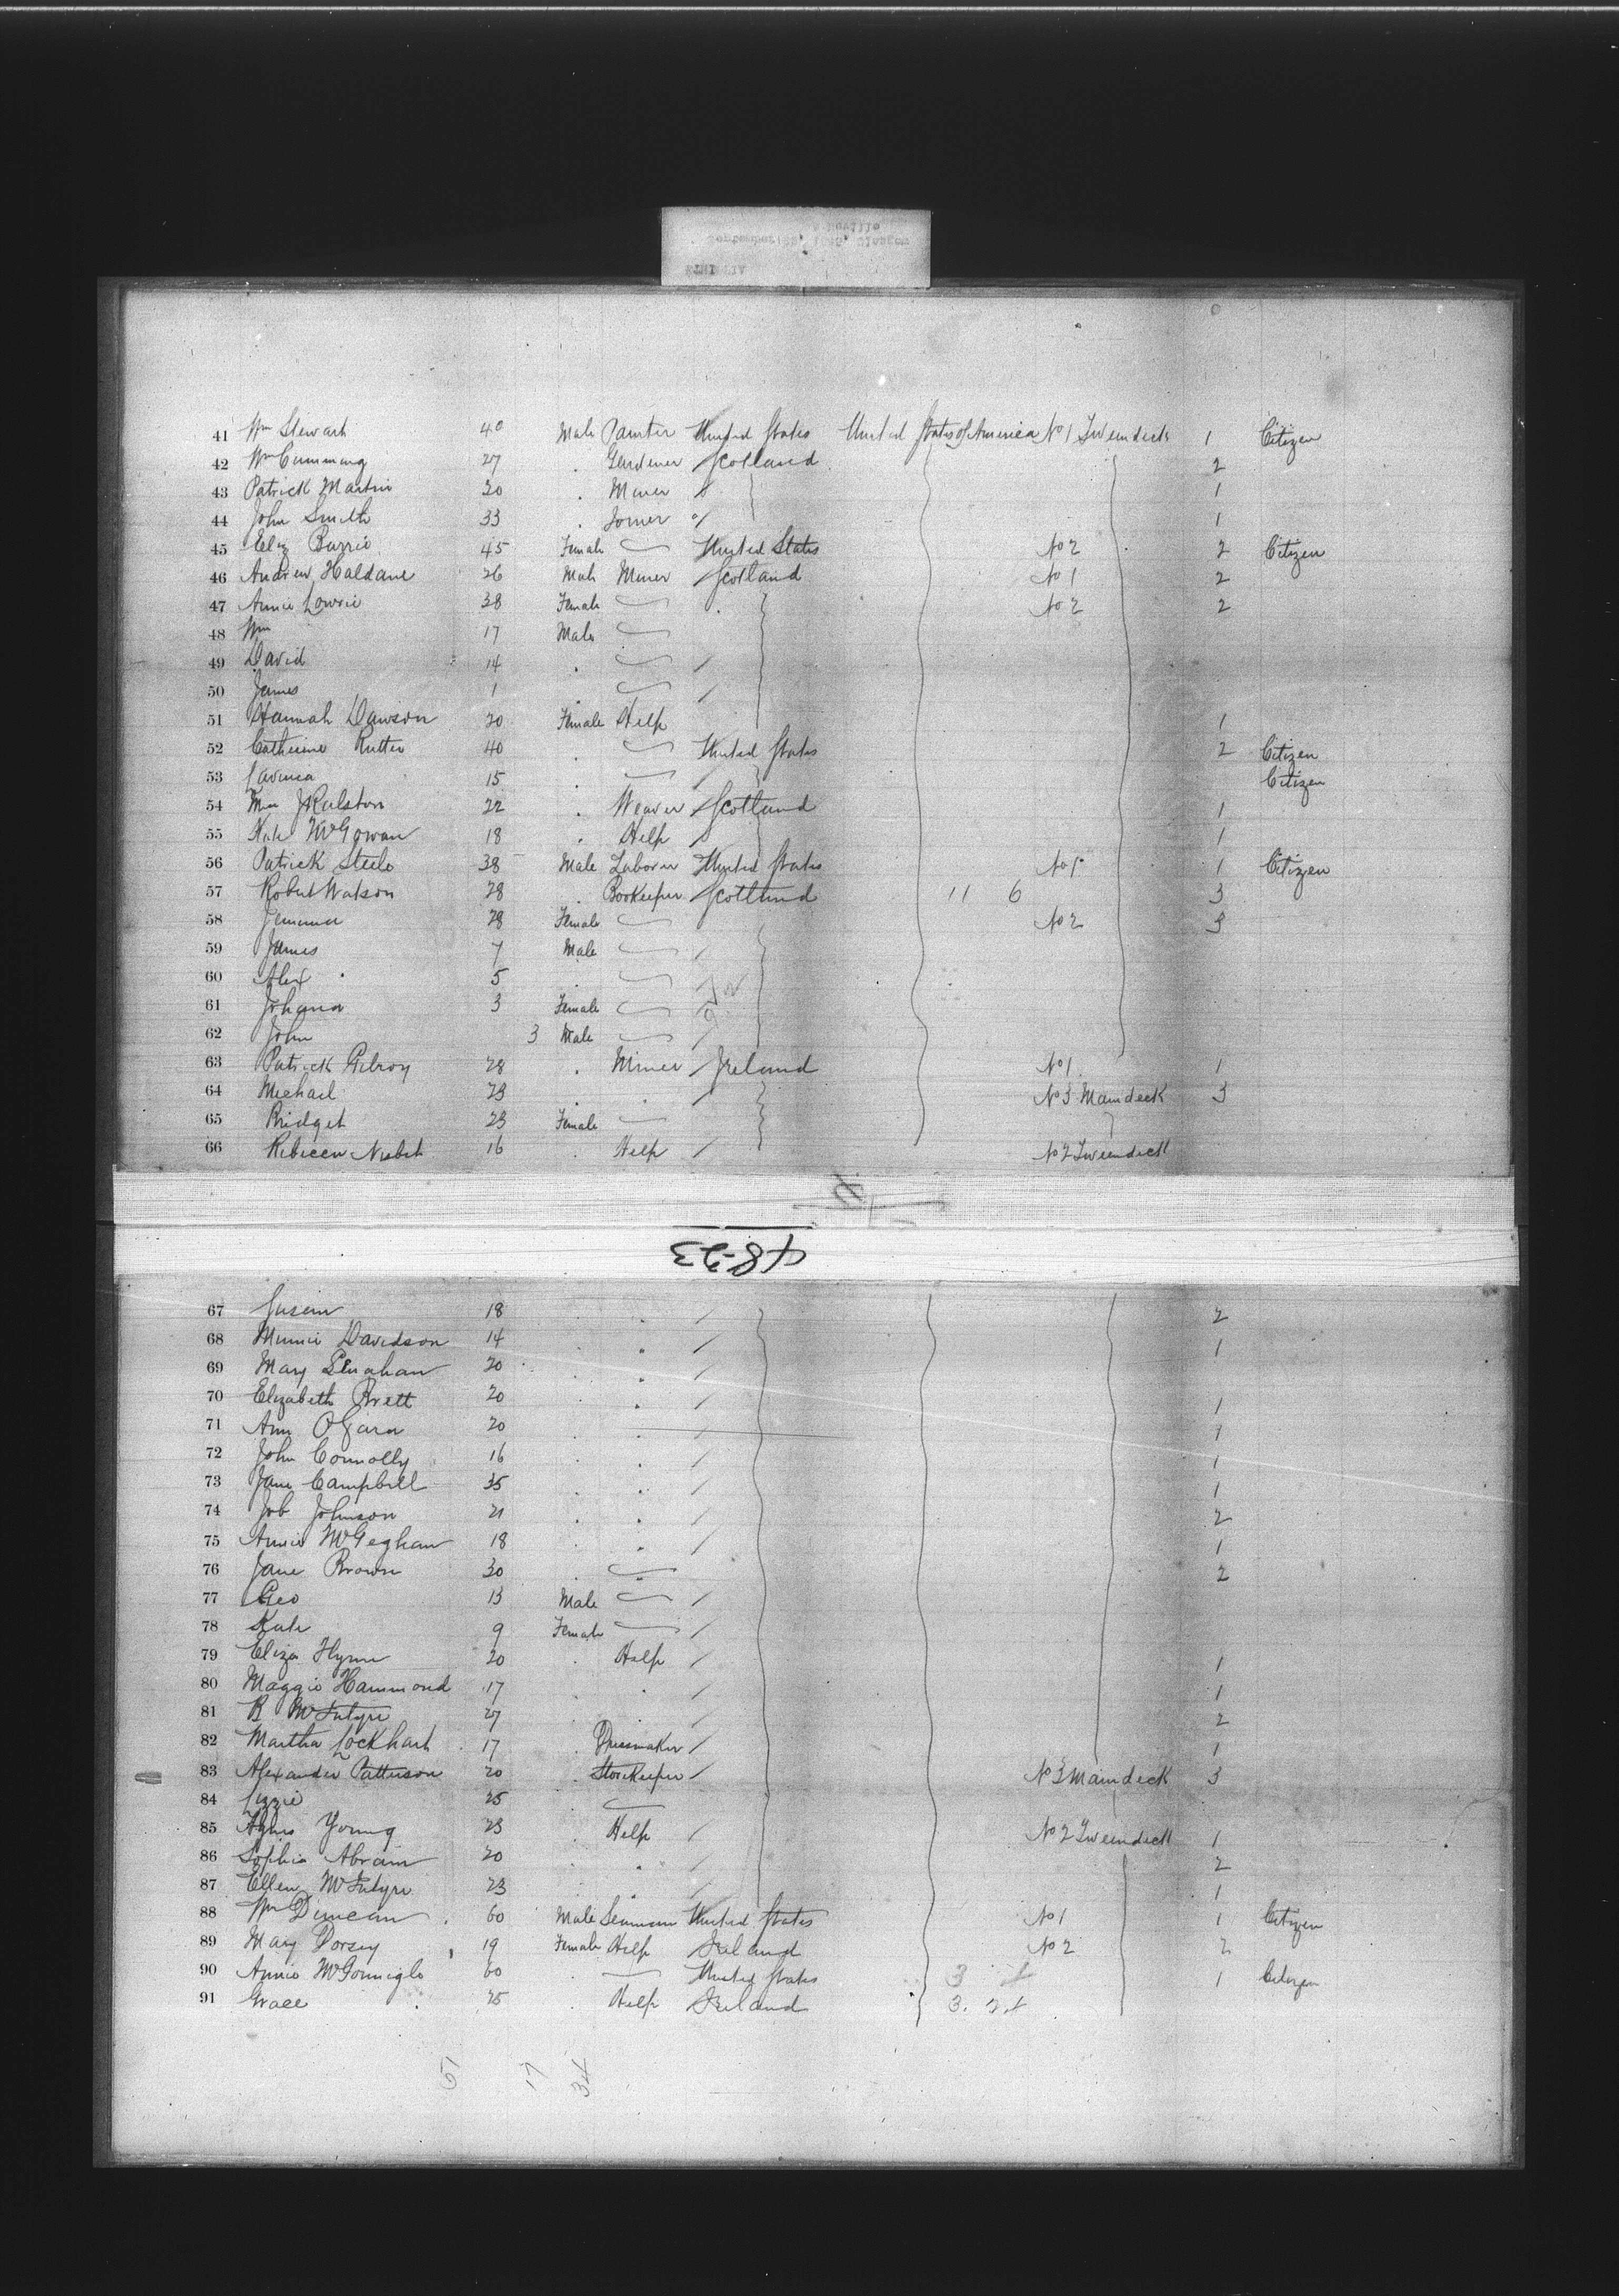 41 Wm Stewart 40 Male Painter United States United States of America No 1 Tweendeck 1 Citizen
42 Wm Cumming 27 . Gardener Scotland 2
43 Patrick Martin 20 . Miner 1
44 John Smith 33 . Joiner 1
45 Eliz Burrie 45 Female United States No 2 2 Citizen
46 Andrew Haldane 26 Male Miner Scotland No 1 2
47 Annie Lowrie 38 Female No 2 2
48 Wm 17 Male
49 David 14 .
50 James 1 .
51 Hannah Dawson 20 Female Help 1
52 Catherine Rutter 40 . United States 2 Citizen
53 Lavinia 15 . Citizen
54 Mrs J Ralston 22 . Weaver Scotland 1
55 Kate McGowan 18 . Help 1
56 Patrick Steele 38 Male Laborer United States No 1 1 Citizen
57 Robert Watson 28 . Bookeeper Scotland 11 6 3
58 Jemima 28 Female No 2 3
59 James 7 Male
60 Alex 5 .
61 Johana 3 Female
62 John 3 Male
63 Patrick Gilroy 28 . Miner Ireland No 1 1
64 Michael 23 . . No 3 Maindeck 3
65 Bridget 23 Female
66 Rebecca Nisbet 16 . Help No 2 Tweendeck
48-23
67 Susan 18 . . 2
68 Minnie Davidson 14 . . 1
69 Mary Lenahan 20 . .
70 Elizabeth Brett 20 . . 1
71 Ann OGara 20 . . 1
72 John Connolly 16 . . 1
73 Jane Campbell 35 . . 1
74 Job Johnson 21 . . 2
75 Annie McGeghan 18 . . 1
76 Jane Brown 30 . 2
77 Geo 13 Male
78 Kate 9 Female
79 Eliza Flynn 20 . Help 1
80 Maggie Hammond 17 . . 1
81 B McIntyre 27 . . 2
82 Martha Lockhart 17 . Dressmaker 1
83 Alexander Patterson 20 . Storekeeper No 3 Maindeck 3
84 Lizzie 25
85 Agnes Young 23 . Help No 2 Tweendeck 1
86 Sophia Abram 20 . . 2
87 Ellen McIntyre 23 . . 1
88 Wm Duncan 60 Male Seaman United States No 1 1 Citizen
89 Mary Dorsey 19 Female Help Ireland No 2 2
90 Annie McGonnigle 60 . United States 3 1 Citizen
91 Grace 25 . Help Ireland 3.
51 17 34